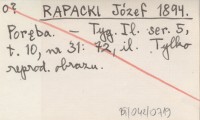 RAPACKI Józef 1894.
Poręba. — Tyg. Il. ser. 5,
t. 10, nr 31: 72, il. Tylko
reprod. obrazu.